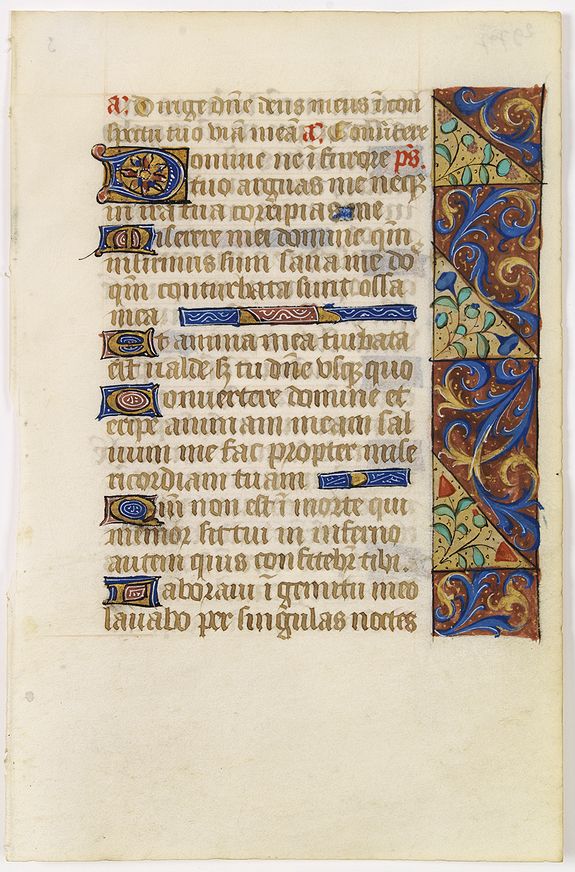 a: Dirige dn̄e deus meus ī con
spectu tuo viā meā a: Conūtere
Domine ne ī furore ps.
tuo arguas me neqꝫ
in ira tua corripias me
Miserere mei domine qm̄
infirmus sum sana me do
qm̄ conturbata sunt ossa
mea
Et anima mea turbata
est valde sꝫ tu dn̄e vsqꝫ quo
Conuertere domine et
eripe animam meam sal
uum me fac propter mise
ricordiam tuam
Qm̄ non est ī morte qui
memor sit tui in inferno
autem quis confitebr̄ tibi.
Laboraui ī gemitu meo
lauabo per singulas noctes